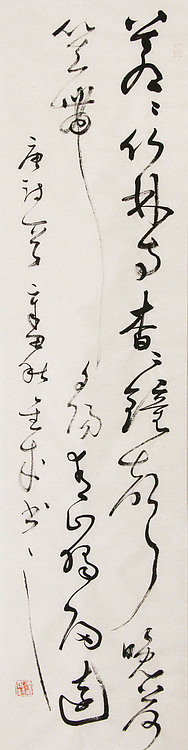 蒼〻竹林寺杳〻鐘聲晚荷
笠帶夕陽青山獨歸遠
唐詩一首 書